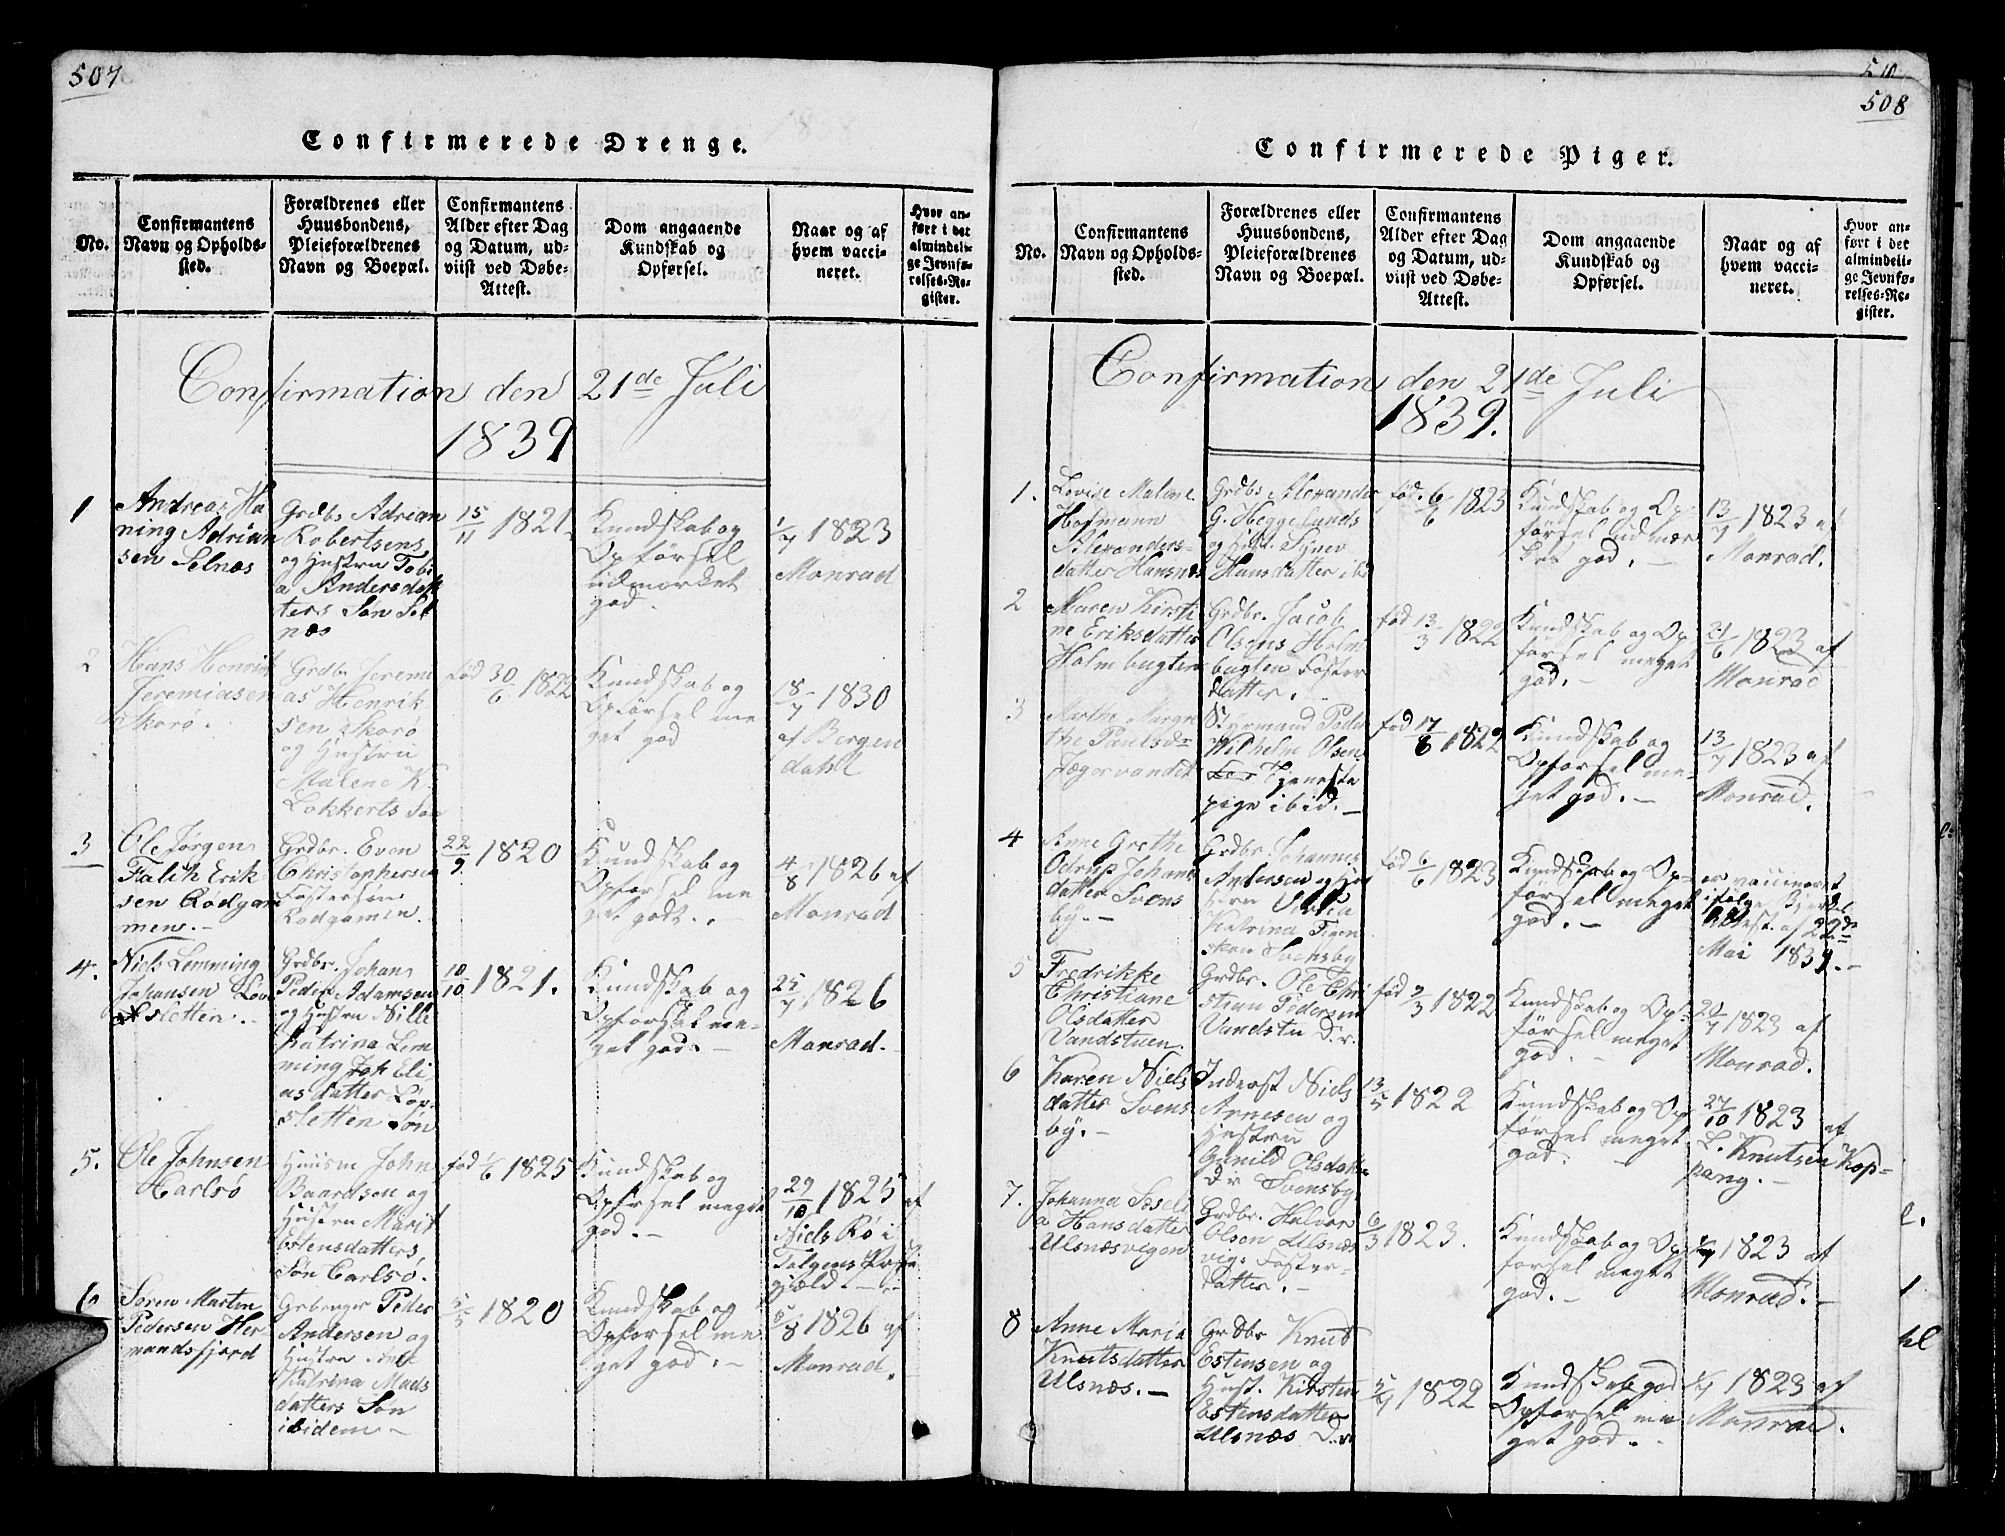 507
Confirmerede Drenge.
No.
Confirmantens
Navn og Opholds-
sted.
Forældrenes eller
Huusbondens,
Pleieforældrenes
Navn og Boepæl.
Confirmantens
Alder efter Dag
og Datum, ud-
viist ved Døbe-
Attest.
Dom angaaende
Kundskab og
Opførsel.
Naar og af
hvem vacci-
neret.
Hvor an-
ført i det
almindeli-
ge Jevnfø-
relses-Re-
gister.
Confirmation den 21de Juli
1839
1
Andreas Ha
ning Adrian
sen Selnæs
Grdbr Adrian
Robertsens
og Hustru Tobi
a Andersdat
ters Søn Sel
næs
15/11 1821.
Kundskab og
Opførsel
udmærket
god.
1/7 1823
Monrad
2
Hans Henrik
Jeremiasen
Skorø.
Grdbr Jeremi
as Henrik
sen Skorø
og Hustru
Malene K.
Lokkerts Søn
fød 30/6 1822
Kundskab og
Opførsel me
get god
18/7 1830
af Bergen
dahl
3
Ole Jørgen
Falch Erik
sen Rødgam
men.-
Grdbr. Even
Christophersen
Fostersøn
Rødgamen.
22/9 1820
Kundskab og
Opførsel me
get godt.-
4/8 1826 af
Monrad
4.
Niels Lemming
Johansen Løv
sletten.-
Grdbr. Johan
Peder Adamsen
og Hustru Nille
Katrina Lem
ming Joh Eli
as datter Løv
sletten Søn
10/10 1821.
Kundskab og
Opførsel me-
get god.-
25/7 1826
Monrad.
5.
Ole Johnsen
Carlsø
Huusm John
Baardsen og
Hustru Marit
Estensdatters,
Søn Carlsø.
fød 1/6 1825
Kundskab og
Opførsel meget
god.-
29/10 1825 af
Niels Rø i
Tolgens Præste
gjæld
6
Søren Martin
Pedersen Her-
mandsfjord
Grbruger Peder
Andersen og
Hustru Ane
Katrina Mads
datters Søn
ibidem-
5/5 1820
Kundskab og
Opførsel me
get god.-
5/8 1826 af
Monrad.
510
508
Confirmerede Piger.
No.
Confirmantens
Navn og Opholds-
sted.
Forældrenes eller
Huusbondens,
Pleieforældrenes
Navn og Boepæl.
Confirmantens
Alder efter Dag
og Datum, ud-
viist ved Døbe-
Attest.
Dom angaaende
Kundskab og
Opførsel.
Naar og af
hvem vacci-
neret.
Hvor an-
ført i det
almindeli-
ge Jevnfø-
relses-Re-
gister.
Confirmation den 21de Juli
1839.
1.
Lovise Malene
Hofmann
Alexanders-
datter Hansnæs
Grdbs Alexander
G. Heggelunds
og Hust. Signe
Hansdatter ibd
fød. 6/6 1823
Kundskab og Op
førsel udmær
ket god.-
13/7 1823 af
Monrad.
2
Maren Kirsti
ne Eriksdatter
Holmbugten
Grdbr. Jacob
Olsens Holm
bugten Foster
datter.
fød 13/3 1822
Kundskab og Op
førsel meget
god.-
21/6 1823 af
Monrad
3
Marthe Margre
the Paulsd=
Jægervandet
Styrmand Peder
Wilhelm Olsen
Tjeneste
pige ibid.-
fød 17/8 1822
Kundskab og
Opførsel me-
get god.-
13/7 1823 af
Monrad.
4
Anne Grethe
Odrup Johans
datter Svens
by.-
Grdbr. Johannes
Andersen og Hu
stru Olivia
Katrina Figen
skou Svensby
fød 6/6 1823
Kundskab og Op=
førsel meget
god.-
er vaccineret
ifølge
Attest af 22de
Mai 1839.-
5
Fredrikke
Christiane
Olsdatter
Vandstuen.
Grdbr. Ole Chri
stian Pedersen
Vandstu D.r.
fød 9/3 1822
Kundskab og Op=
førsel meget
god.-
20/7 1823 af
Monrad.
6
Karen Niels
datter Svens
by.-
Inderst Niels
Arnesen og
Hustru
Gunild Olsdat
Dr Svensby
13/5 1822
Kundskab og Op
førsel meget
god.
27/10 1823 af
L. Knutsen Kop-
pang.-
7.
Johanna Seseli
a Hansdatter
Ulsnæsvigen
Grdbr. Halvor
Olsen Ulsnæs
vigs Foster-
datter.-
6/3 1823.
Kundskab og Op
førsel meget
god.-
1823 af
Monrad.-
8
Anne Maria
Knutsdatter
Ulsnæs.-
Grdbr Knut
Estensen og
Hust. Kirsten
Estensdatter
Ulsnæs D.r
5/9 1822
Kundskab god
Opførsel me
get god.-
1823 af
Monrad.